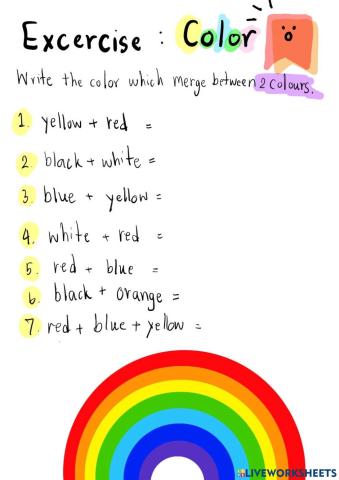 Excercise : Color
Write the color which merge between 2 colours.
1. yellow + red =
2. black + white =
3. blue + yellow =
4. white + red =
5. red + blue =
6. black + orange =
7. red + blue + yellow =
LIVEWORKSHEETS